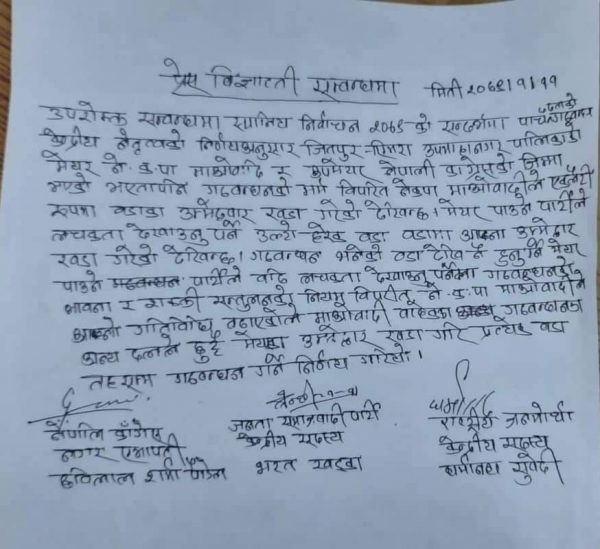 प्रेस विज्ञप्ती सम्वन्धमा
मिती २०७९।१।११
उपरोक्त सम्वन्धमा स्थानिय निर्वाचन २०७९ को सन्दर्भमा पाच दलको
केन्द्रीय नेतृत्वको निर्णय अनुसार जितपुर-सिमरा उपमहानगर पालिकाको
मेयर ने.क.पा माओवादी र उपमेयर नेपाली काग्रेसको जिम्मा
भएको भएतापनि गठवन्धनको मर्म विपरित नेकपा माओवादीले एकलौटी
रूपमा वडाका उम्मेदवार खडा गरेको देखिन्छ। मेयर पाउने पार्टीले
लचकता देखाउनु पर्ने उल्टो हरेक वडा वडामा आफ्ना उम्मेद्वार
खडा गरेको देखिन्छ। गठवन्धन भनेको वडा देखि नै हुनुपर्ने मेयर
पाउने गठवन्धन पार्टीले वढि लचकता देखाउनु पर्नेमा गठवन्धनको
भावना र शक्ती सन्तुलनको नियम विपरीत ने.क.पा माओवादीले
आफ्नो गतिविधि वढाएकोले माओवादी वाहेकका गठवन्धनका
अन्य दलले छुट्टै मेयरका उम्मेद्वार खडा गरि प्रत्येक वडा
तहसम्म गठवन्धन गर्ने निर्णय गरियो।
नेपाली काँग्रेस
नगर सभापती
छविलाल शर्मा पौडेल
जनता समाजवादी पार्टी
केन्द्रीय सदस्य
भरत खड्का
राष्ट्रिय जनमोर्चा
केन्द्रीय सदस्य
सुवेदी